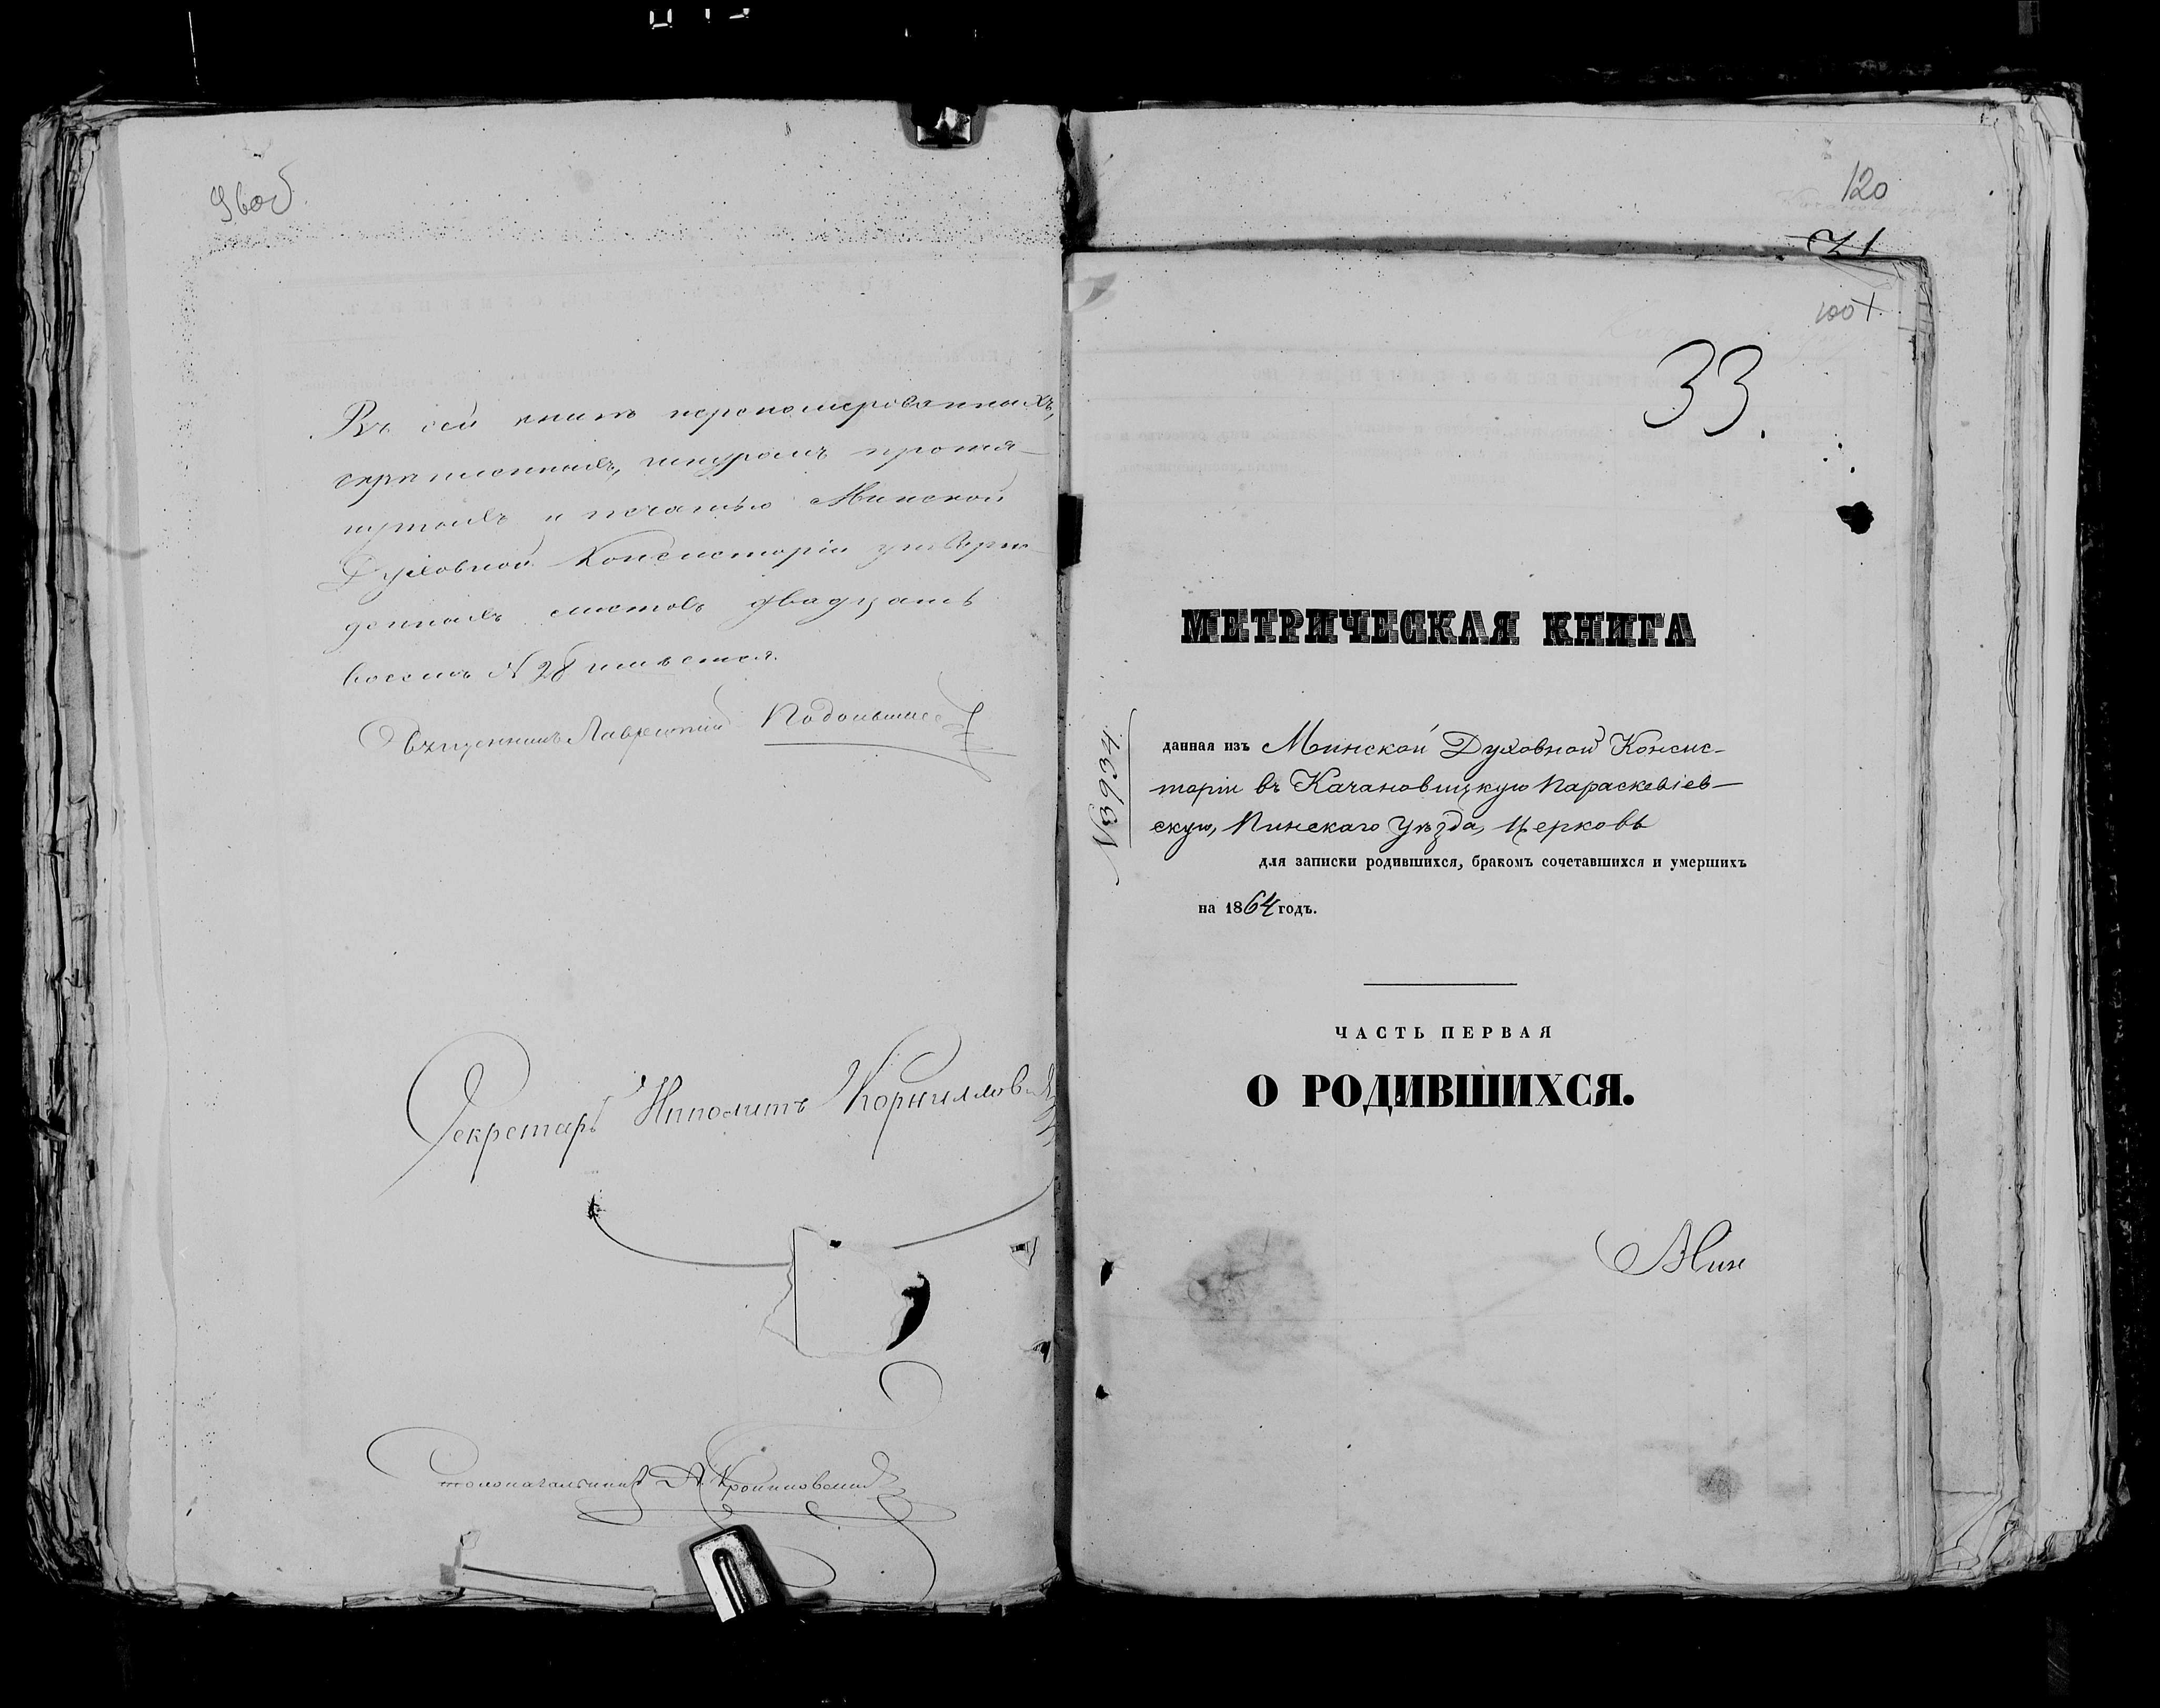 96об
Въ сей книгѣ перономерованныхъ,
скрѣпленныхъ, шнуромъ протя-
нутыхъ и печатью Минской
Духовной Консисторіи утверж-
денныхъ листовъ двадцать
восемь № 28 имѣется.
Священникъ Лаврентій
Секретарь Ипполитъ
Столоначальникъ
120
71
100
33.
МЕТРИЧЕСКАЯ КНИГА
№ 3934
данная изъ Минской Духовной Консис-
торіи въ Качановицкую Параскевіев-
скую, Пинскаго Уѣзда, Церковь
для записки родившихся, бракомъ сочетавшихся и умершихъ
на 1864 годъ.
ЧАСТЬ ПЕРВАЯ
О РОДИВШИХСЯ.
Мин